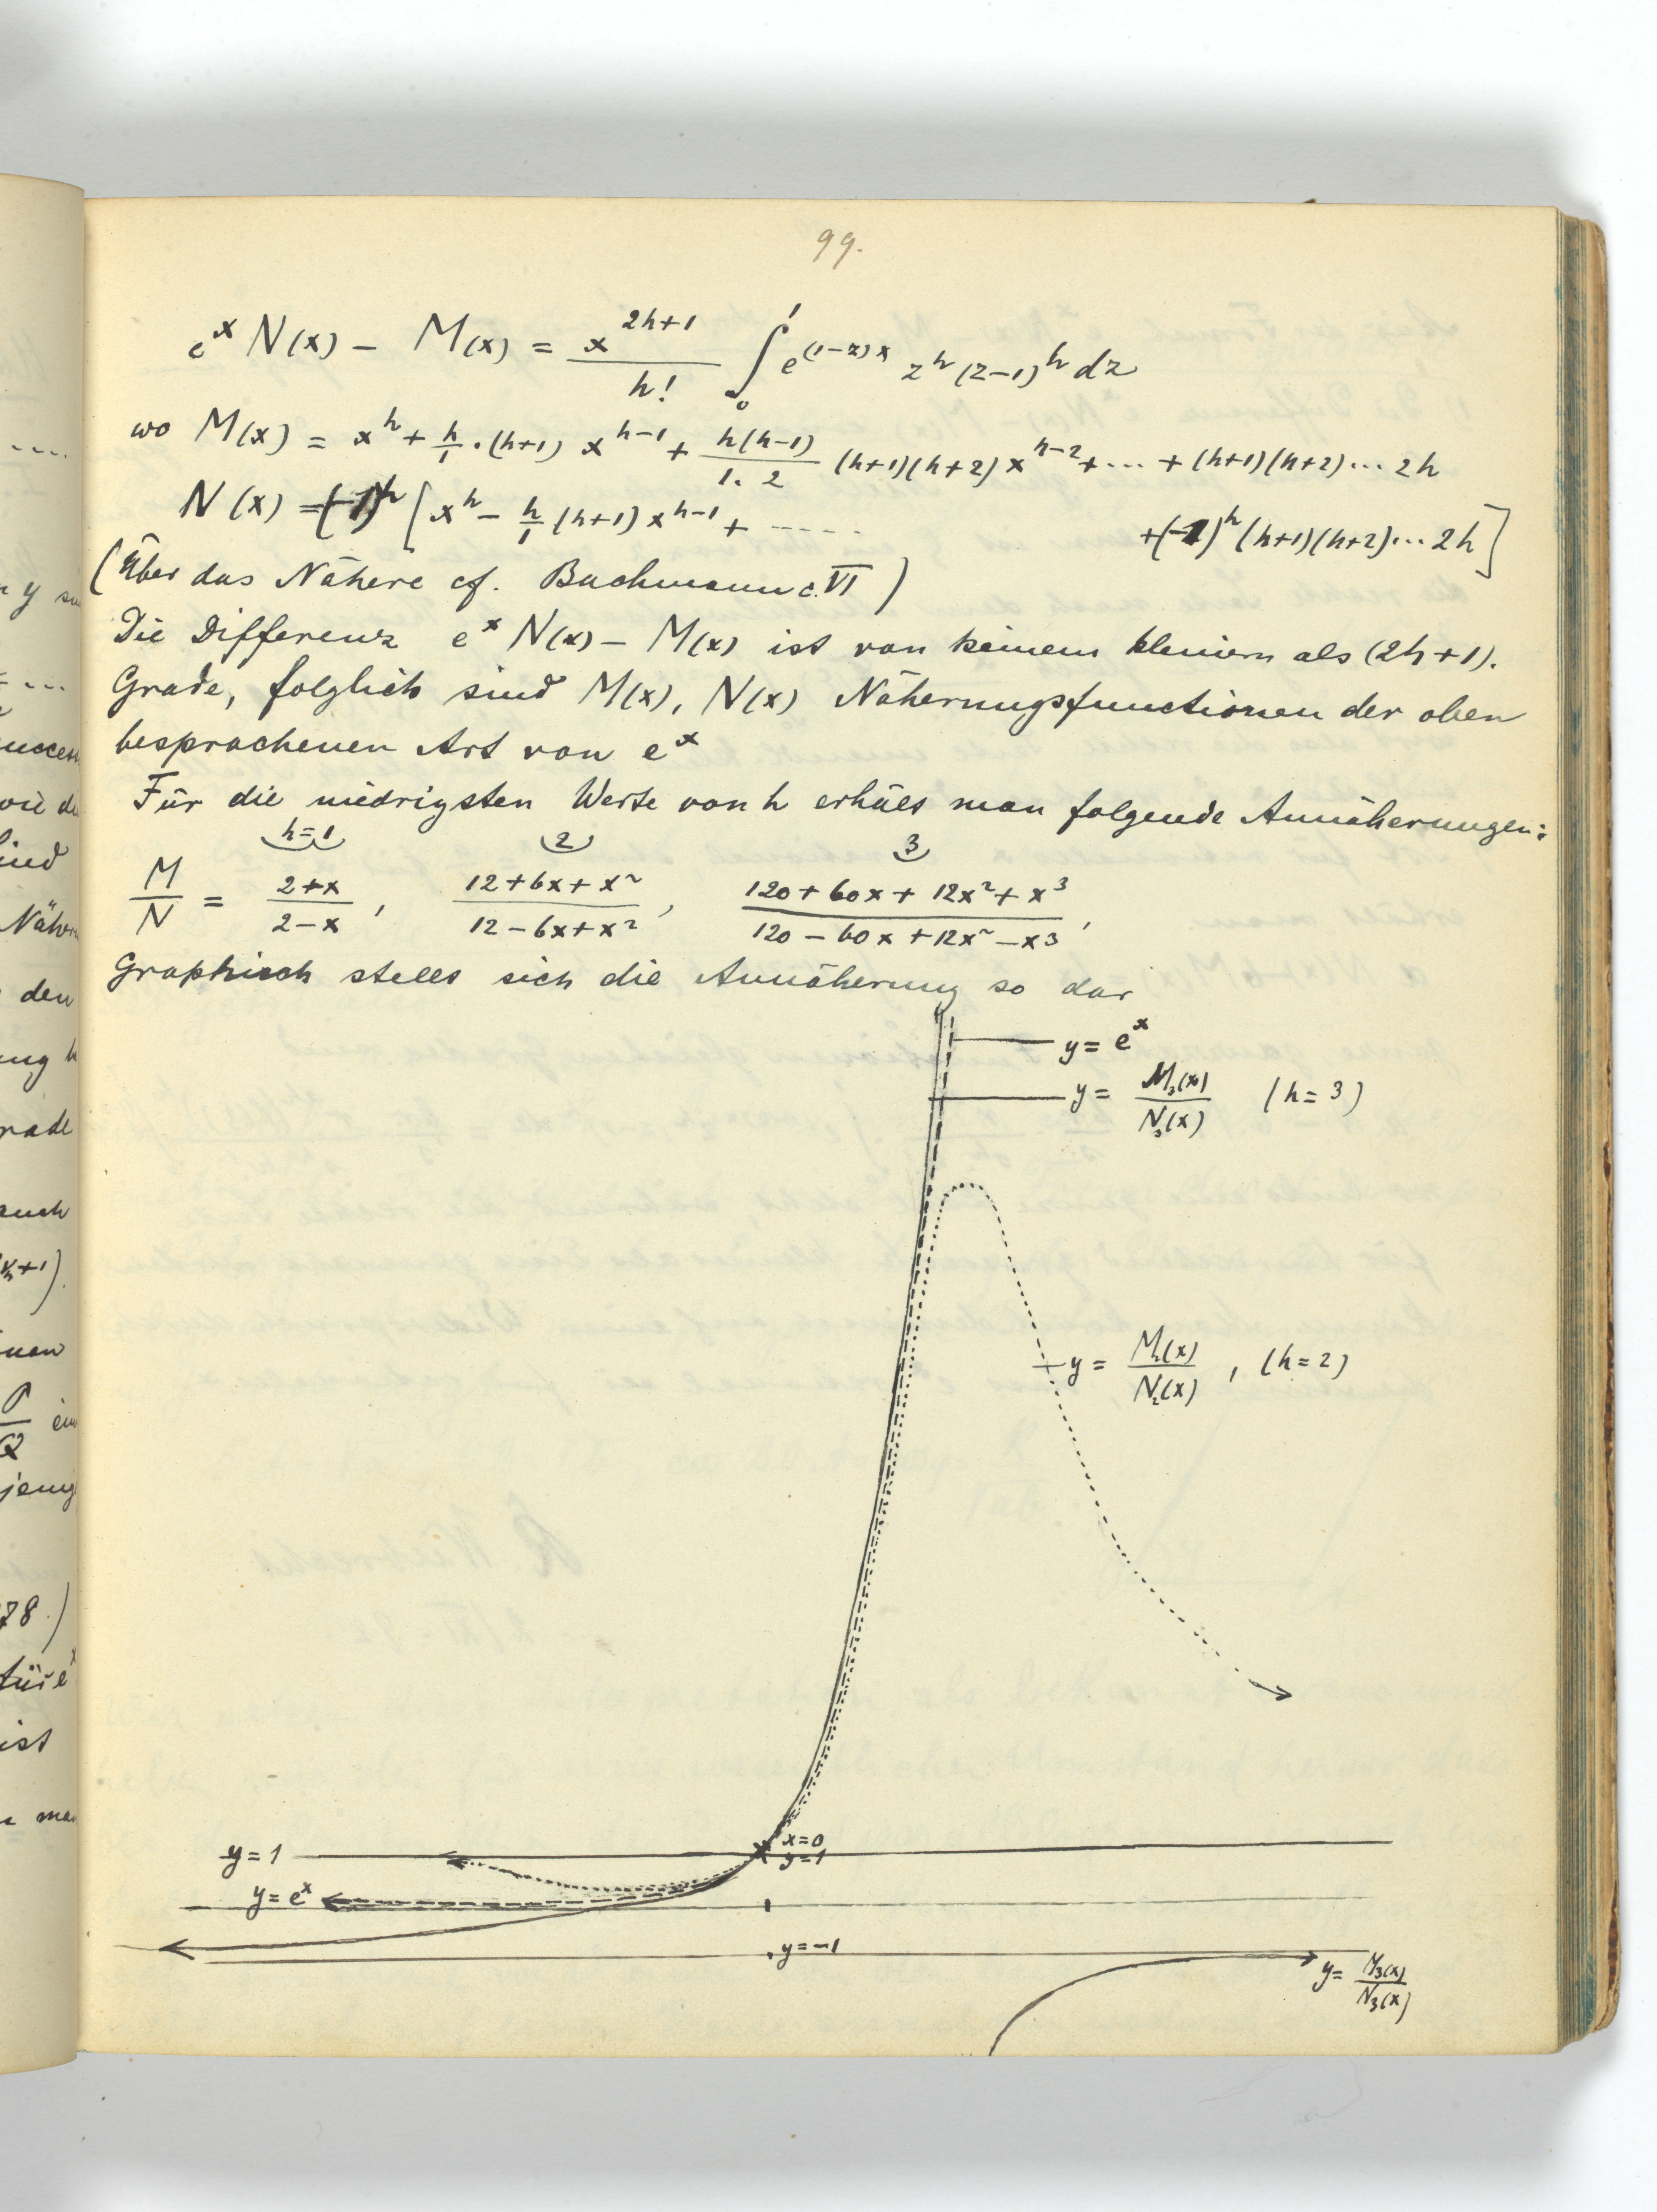 99.
e^x N(x) − M(x) = x^{2h+1} / h! ∫_0^1 e^{(1−z)x} z^h (z−1)^h dz
wo M(x) = x^h + h/1 · (h+1) x^{h−1} + h(h−1)/1.2 (h+1)(h+2) x^{h−2} + ... + (h+1)(h+2) ... 2h
N(x) = (−1)^h [x^h − h/1 (h+1) x^{h−1} + ..... + (−1)^h (h+1)(h+2) ... 2h]
(Über das Nähere cf. Bachmann c. VI)
Die Differenz e^x N(x) − M(x) ist von keinem kleinern als (2h+1).
Grade, folglich sind M(x), N(x) Näherungsfunctionen der oben
besprochenen Art von e^x
Für die niedrigsten Werte von h erhält man folgende Annäherungen:
h=1 2 3
M/N = (2+x)/(2−x), (12+6x+x²)/(12−6x+x²), (120+60x+12x²+x³)/(120−60x+12x²−x³),
Graphisch stellt sich die Annäherung so dar
y = e^x
y = M₃(x)/N₃(x) (h=3)
y = M₂(x)/N₂(x), (h=2)
x=0
y=1
y=1
y=e^x
y=−1
y= M₃(x)/N₃(x)